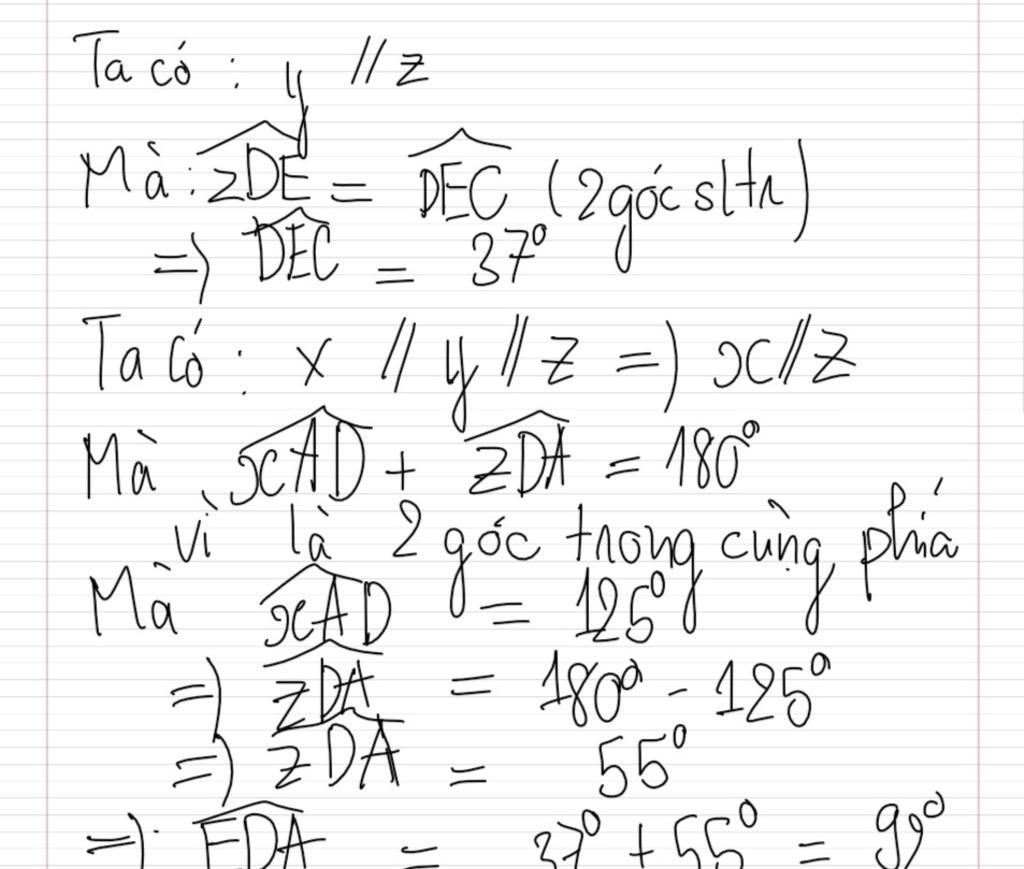 Ta có : y // z
Mà : \widehat{zDE} = \widehat{DEC} (2 góc sltr)
=> \widehat{DEC} = 37°
Ta có : x // y // z => x // z
Mà \widehat{xAD} + \widehat{zDA} = 180°
vì là 2 góc trong cùng phía
Mà \widehat{xAD} = 125°
=> \widehat{zDA} = 180° - 125°
=> \widehat{zDA} = 55°
=> \widehat{EDA} = 37° + 55° = 99°